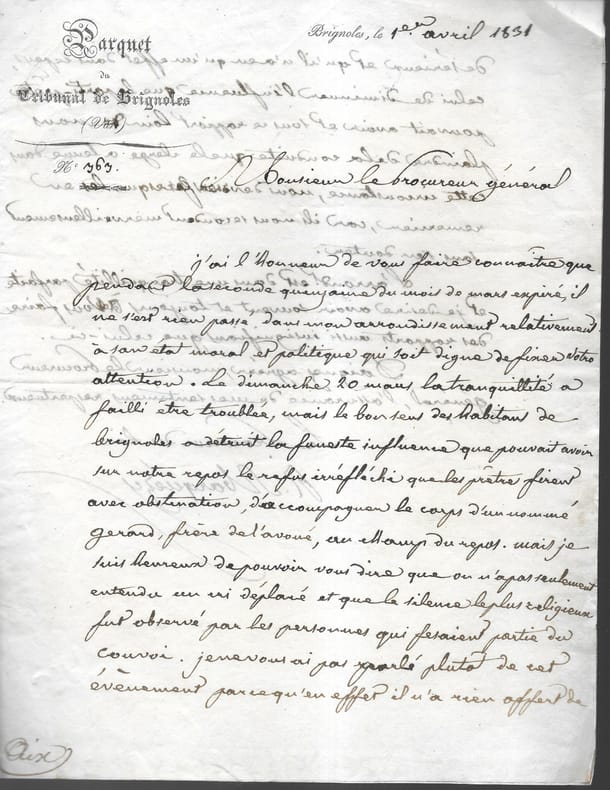 Parquet
du
Tribunal de Brignoles
(Var)
N° 363.
Brignoles, le 1er avril 1831
Monsieur le procureur général
j'ai l'honneur de vous faire connaître que
pendant la seconde quinzaine du mois de mars expiré, il
ne s'est rien passé dans mon arrondissement relativement
à son état moral et politique qui soit digne de fixer votre
attention. Le dimanche 20 mars la tranquillité a
failli etre troublée, mais le bon sens des habitans de
brignoles a détruit la funeste influence que pouvait avoir
sur notre repos le refus irréfléchi que les prêtre firent
avec obstination, d'accompagner le corps d'un nommé
gerard, frère de l'avoué, au champ du repos. mais je
suis heureux de pouvoir vous dire que on n'a pas seulement
entendu un cri déplacé et que le silence le plus religieux
fut observé par les personnes qui fesaient partie du
convoi. je ne vous ai pas parlé plutot de cet
évènement parcequ'en effet il n'a rien offert de
Aix